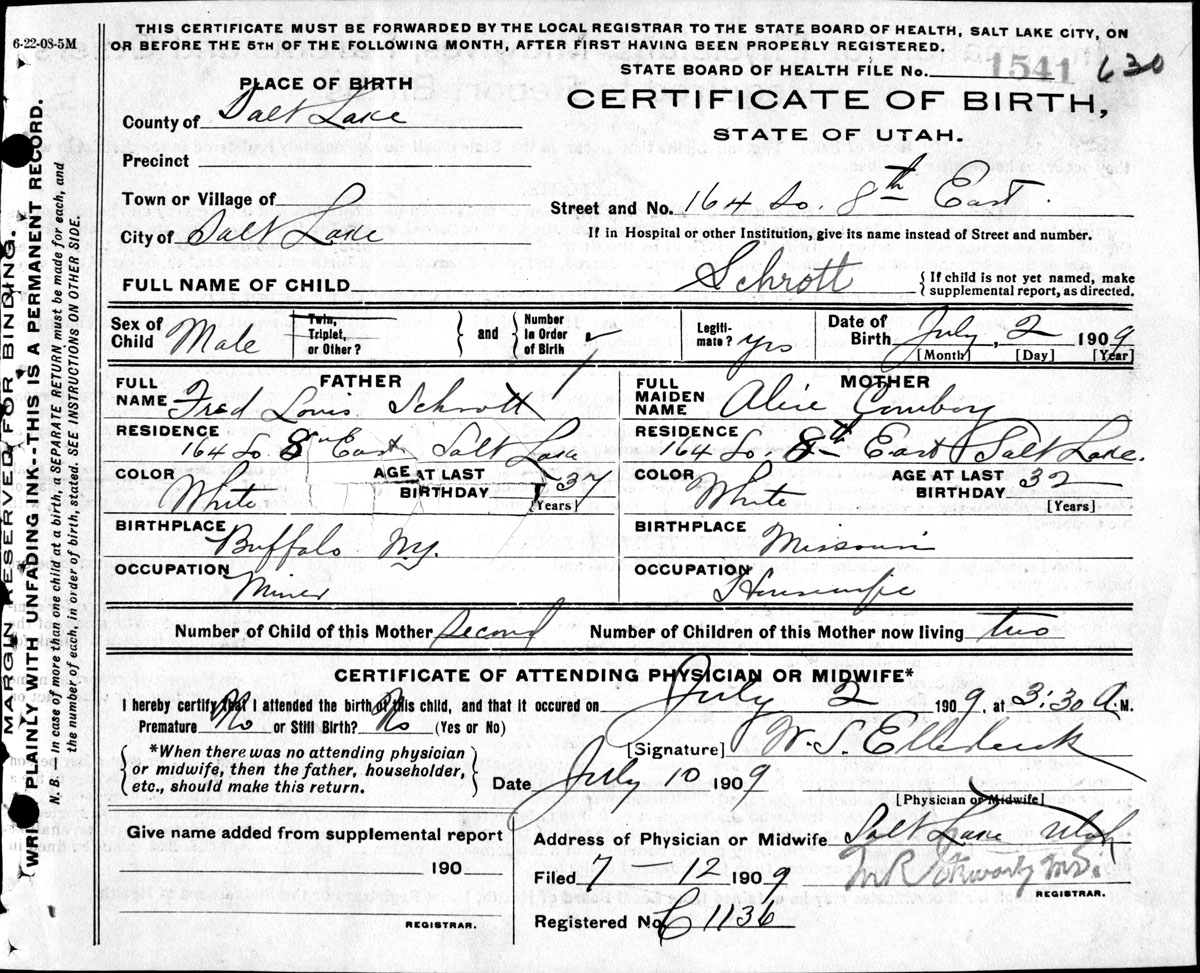 6-22-08-5M
THIS CERTIFICATE MUST BE FORWARDED BY THE LOCAL REGISTRAR TO THE STATE BOARD OF HEALTH, SALT LAKE CITY, ON
OR BEFORE THE 5TH OF THE FOLLOWING MONTH, AFTER FIRST HAVING BEEN PROPERLY REGISTERED.
STATE BOARD OF HEALTH FILE No. 1541 630
PLACE OF BIRTH
CERTIFICATE OF BIRTH,
STATE OF UTAH.
County of Salt Lake
Precinct
Town or Village of
Street and No. 164 So. 8th East
City of Salt Lake
If in Hospital or other Institution, give its name instead of Street and number.
FULL NAME OF CHILD Schrott
{ If child is not yet named, make
supplemental report, as directed.
Sex of Child Male
Twin, Triplet, or Other? } and { Number in Order of Birth 1
Legiti-mate? yes
Date of Birth July, 2 1909
[Month] [Day] [Year]
FATHER
FULL NAME Fred Louis Schrott
RESIDENCE 164 So. 8th East Salt Lake
COLOR White
AGE AT LAST BIRTHDAY 37 [Years]
BIRTHPLACE Buffalo N.Y.
OCCUPATION Miner
MOTHER
FULL MAIDEN NAME Alice Conboy
RESIDENCE 164 So. 8th East Salt Lake.
COLOR White
AGE AT LAST BIRTHDAY 32 [Years]
BIRTHPLACE Missouri
OCCUPATION Housewife
Number of Child of this Mother Second Number of Children of this Mother now living two
CERTIFICATE OF ATTENDING PHYSICIAN OR MIDWIFE*
I hereby certify that I attended the birth of this child, and that it occured on July 2 1909, at 3:30 A.M.
Premature No or Still Birth? No (Yes or No)
{ *When there was no attending physician
or midwife, then the father, householder,
etc., should make this return. }
[Signature] W. S.
Date July 10 1909
[Physician or Midwife]
Give name added from supplemental report
190
REGISTRAR.
Address of Physician or Midwife Salt Lake Utah
Filed 7 - 12 1909
REGISTRAR.
Registered No. C 1136
MARGIN RESERVED FOR BINDING.
WRITE PLAINLY WITH UNFADING INK--THIS IS A PERMANENT RECORD.
N. B. In case of more than one child at a birth, a SEPARATE RETURN must be made for each, and
the number of each, in order of birth, stated. SEE INSTRUCTIONS ON OTHER SIDE.